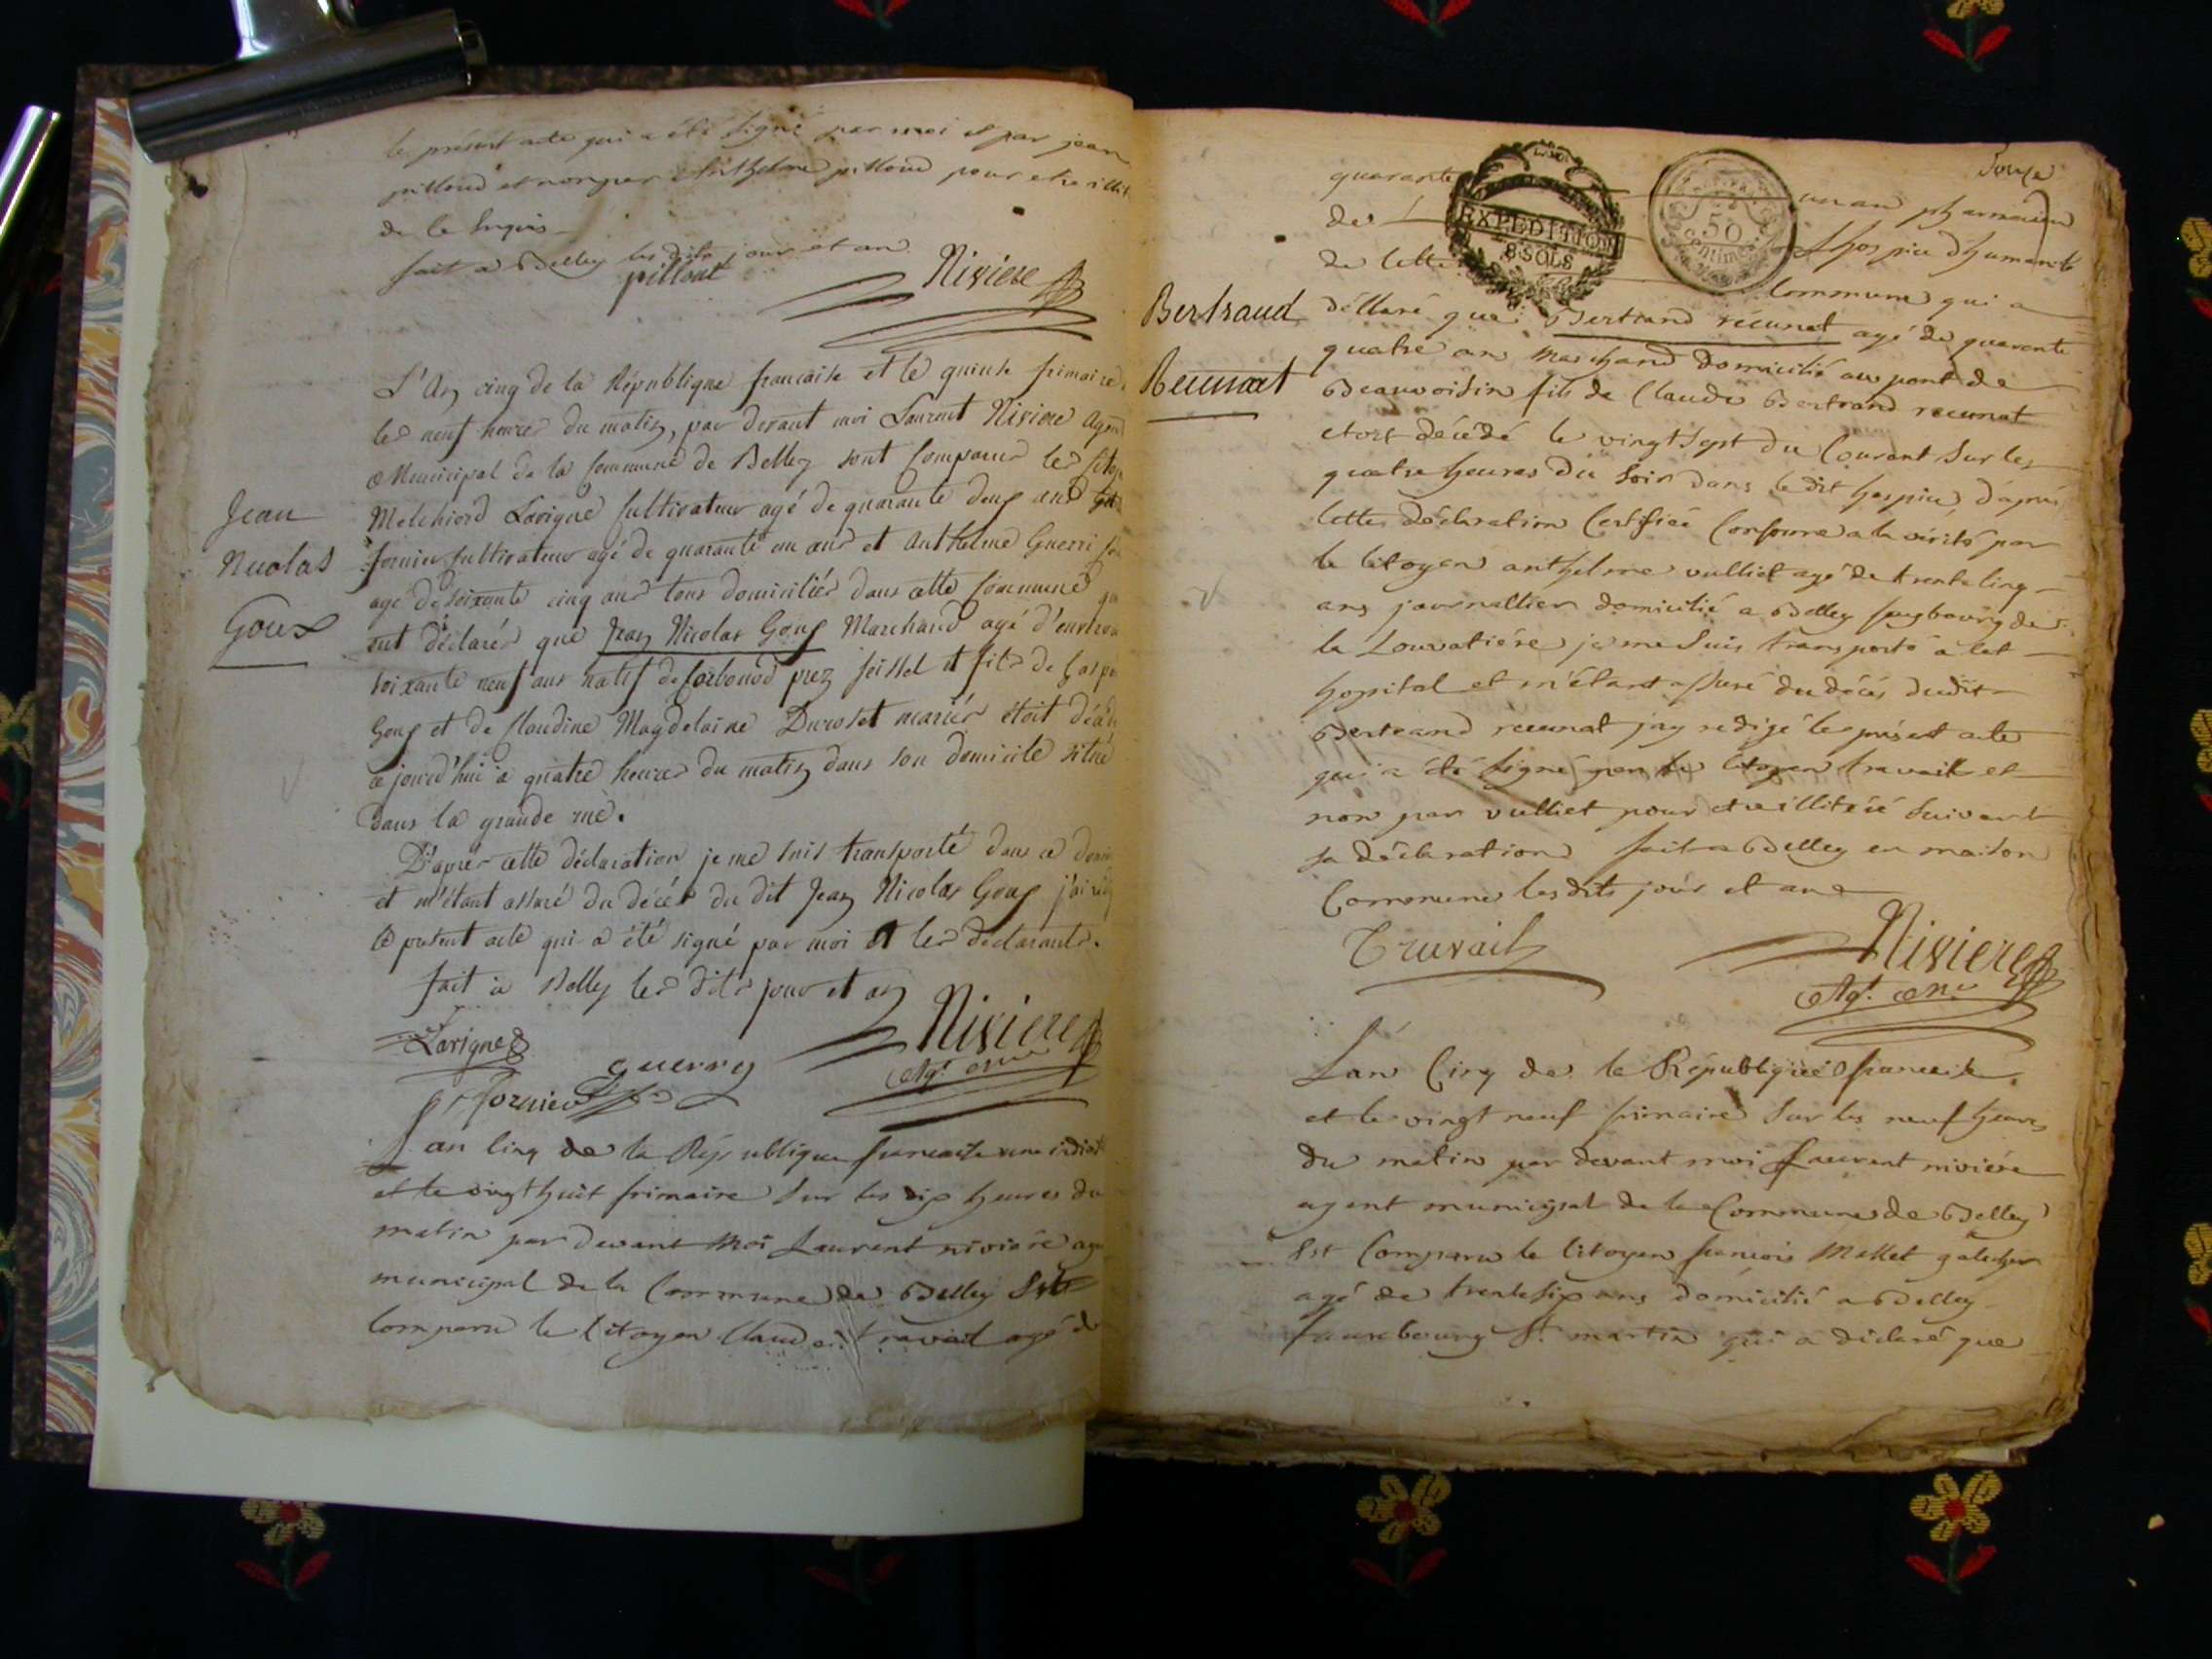 le présent acte qui a été signé par moi et par jean
pilloud et non par Anthelme pilloud pour etre illit
de le
fait a Belley les dits jour et an
pillout Niviere
L'An cinq de la République francaise et le quinze frimaire
les neuf heures du matin, par devant moi Laurent Niviere Agent
Municipal de la Commune de Belley sont Comparus les Citoy
Melchiord Lavigne Cultivateur agé de quarante deux ans
fornier Cultivateur agé de quarante un ans et Anthelme Guerri
agé de soixante cinq ans tous domiciliés dans cette Commune qu
ont déclarés que Jean Nicolas Goux Marchand agé d'environ
soixante neuf ans natif de Corbonod prez seissel et fils de Gaspa
Goux et de Claudine Magdelaine Durostet mariés étoit décédé
ce jourd'hui à quatre heures du matin dans son domicile situé
Dans la grande rue.
D'après cette déclaration je me suis transporté dans ce domi
et m'étant assuré du décès du dit Jean Nicolas Goux j'ai rédig
le présent acte qui a été signé par moi et les déclarants.
fait à Belley les dits jour et an
Jean
Nicolas
Goux
Lavigne guerry Niviere
fornier Agt. mal
L'an Cinq de la République francaise une indivis
et le vingt huit frimaire sur les dix heures du
matin par devant moi Laurent niviere age
municipal de la Commune de Belley Est
Comparu le Citoyen Claude travail agé de
Douze
quarante un an pharmacien
de Lhospice d'humanité
de Cette Commune qui a
EXPEDITION
8 SOLS
50
centimes
Bertrand
Recunat
déclaré que Bertrand recunat agé de quarante
quatre ans Marchand domicilié au pont de
Beauvoisin fils de Claude Bertrand recunat
etoit décédé le vingt sept du Courant sur les
quatre heures du soir dans le dit hospice d'après
cette déclaration Certifiée Conforme a la vérité par
le Citoyen anthelme vulliet agé de trente cinq
ans journallier domicilié a Belley faugbourg de
la Louvatiére je me suis transporté a cet
hopital et m'étant assuré du décés dudit
Bertrand recunat j'ay redigé le présent acte
qui a été signé par le Citoyen travail et
non par vulliet pour etre illitéré suivant
sa déclaration fait a Belley en maison
Commune les dits jour et an
Travail Niviere
Agt. mal
L'an Cinq de la République francaise
et le vingt neuf frimaire sur les neuf heures
du matin par devant moi Laurent niviére
agent municipal de la Commune de Belley
Est Comparu le Citoyen francois Mallet
agé de trente six ans domicilié a Belley
fauxbourg St. martin qui a déclaré que